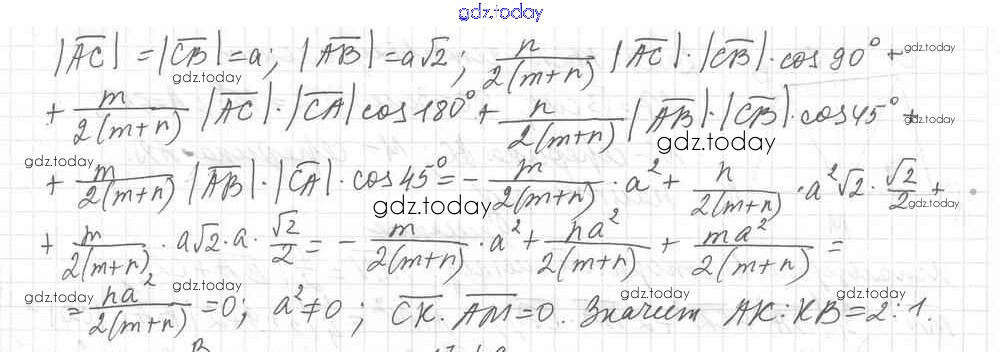 gdz.today
|AC| = |CB| = a; |AB| = a√2; n/2(m+n) |AC|·|CB|·cos 90° +
gdz.today gdz.today
+ m/2(m+n) |AC|·|CA| cos 180° + n/2(m+n) |AB|·|CB|·cos 45° +
gdz.today gdz.today gdz.today
gdz.today
+ m/2(m+n) |AB|·|CA|·cos 45° = - m/2(m+n) · a² + n/2(m+n) · a²√2 · √2/2 +
gdz.today gdz.today
+ m/2(m+n) · a√2 · a · √2/2 = - m/2(m+n) · a² + na²/2(m+n) + ma²/2(m+n) =
gdz.today gdz.today gdz.today gdz.today
= na²/2(m+n) = 0; a² ≠ 0; CK · AM = 0. Значит AK : KB = 2 : 1.